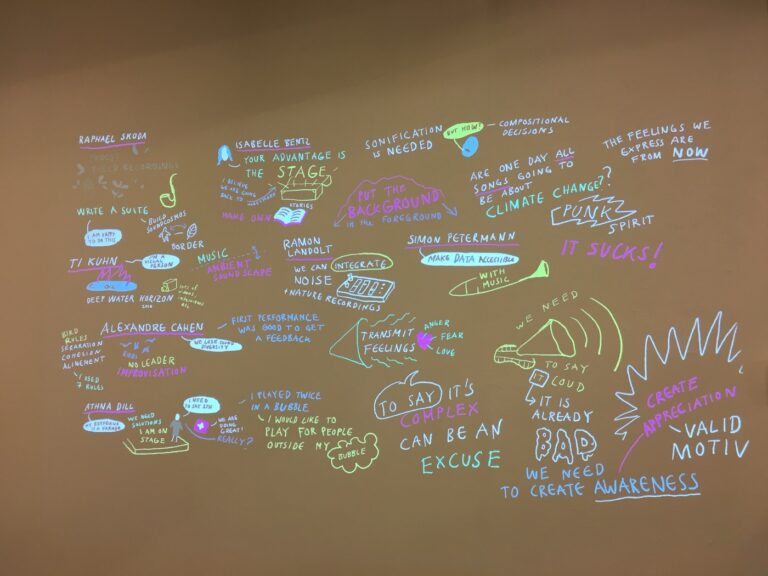 RAPHAEL SKODA
FIELD RECORDINGS
WRITE A SUITE
BUILD
SOUNDCOSMOS
I AM HAPPY
TO DO THIS
BORDER
TI KUHN
I'M A
VISUAL
PERSON
OIL
DEEP WATER HORIZON
LOTS OF
VIDEOS
MUSIC
AMBIENT
SOUND SCAPE
ISABELLE BENTZ
YOUR ADVANTAGE IS
THE STAGE
I BELIEVE
WE ARE GOING
BACK TO
STORIES
MAKE OWN
SONIFICATION
IS NEEDED
BUT HOW?
COMPOSITIONAL
DECISIONS
PUT THE
BACKGROUND
IN THE FOREGROUND
ARE ONE DAY ALL
SONGS GOING TO
BE ABOUT
CLIMATE CHANGE??
THE FEELINGS WE
EXPRESS ARE
FROM NOW
PUNK
SPIRIT
IT SUCKS!
RAMON
LANDOLT
WE CAN INTEGRATE
NOISE
+ NATURE RECORDINGS
SIMON PETERMANN
MAKE DATA ACCESSIBLE
WITH
MUSIC
ALEXANDRE CAHEN
BIRD
RULES
SEPARATION
COHESION
ALINEMENT
I USED
7 RULES
WE LOSE SOUND
DIVERSITY
NO LEADER
IMPROVISATION
FIRST PERFORMANCE
WAS GOOD TO GET
A FEEDBACK
TRANSMIT
FEELINGS
ANGER
FEAR
LOVE
WE NEED
TO SAY
IT LOUD
IT IS
ALREADY
BAD
WE NEED
TO CREATE AWARENESS
CREATE
APPRECIATION
VALID
MOTIV
ATHNA DILL
WE NEED
SOLUTIONS
I AM ON
STAGE
I NEED
TO SAY STH
WE ARE
DOING
GREAT!
REALLY?
I PLAYED TWICE
IN A BUBBLE
I WOULD LIKE TO
PLAY FOR PEOPLE
OUTSIDE MY
BUBBLE
TO SAY IT'S
COMPLEX
CAN BE AN
EXCUSE